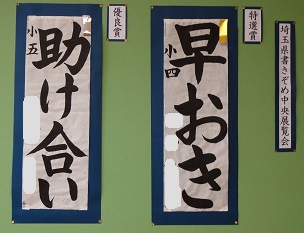 埼玉県書きぞめ中央展覧会
特選賞
早おき
小四
優良賞
助け合い
小五